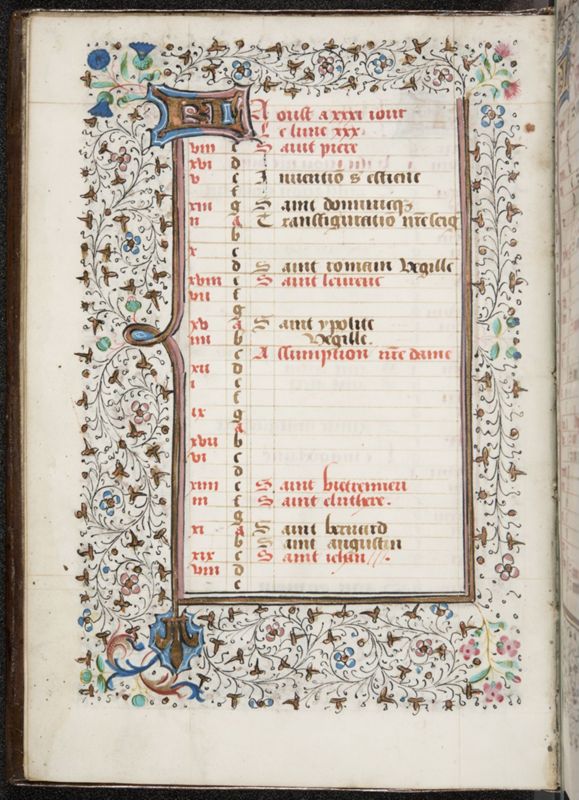 KL Aoust a xxxi iour
Le lune xxx.
viii c Saint piere
xvi d
v e Inuentiō s estiene
f
xiii g Saint dominicq
ii A Transfiguratiō nr̄e seig
b
x c
d Saint romain Vegille
xviii e Saint leurens
vii f
g
xv A Saint ypolite
iiii b Vegille.
c Assumption nr̄e dame
xii d
i e
f
ix g
A
xvii b
vi c
d
xiiii e Saint bietremieu
iii f Saint eluthere.
g
xi A Saint bernard
b Saint augustin
xix c Saint iehan
viii d
e